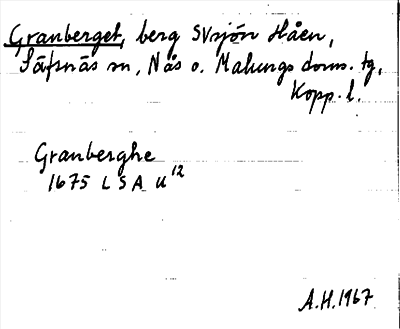 Granberget, berg SV sjön Håen,
Säfsnäs sn, Nås o. Malungs doms. tg,
Kopp. l.
Granberghe
1675 LSA U12
A.H. 1967